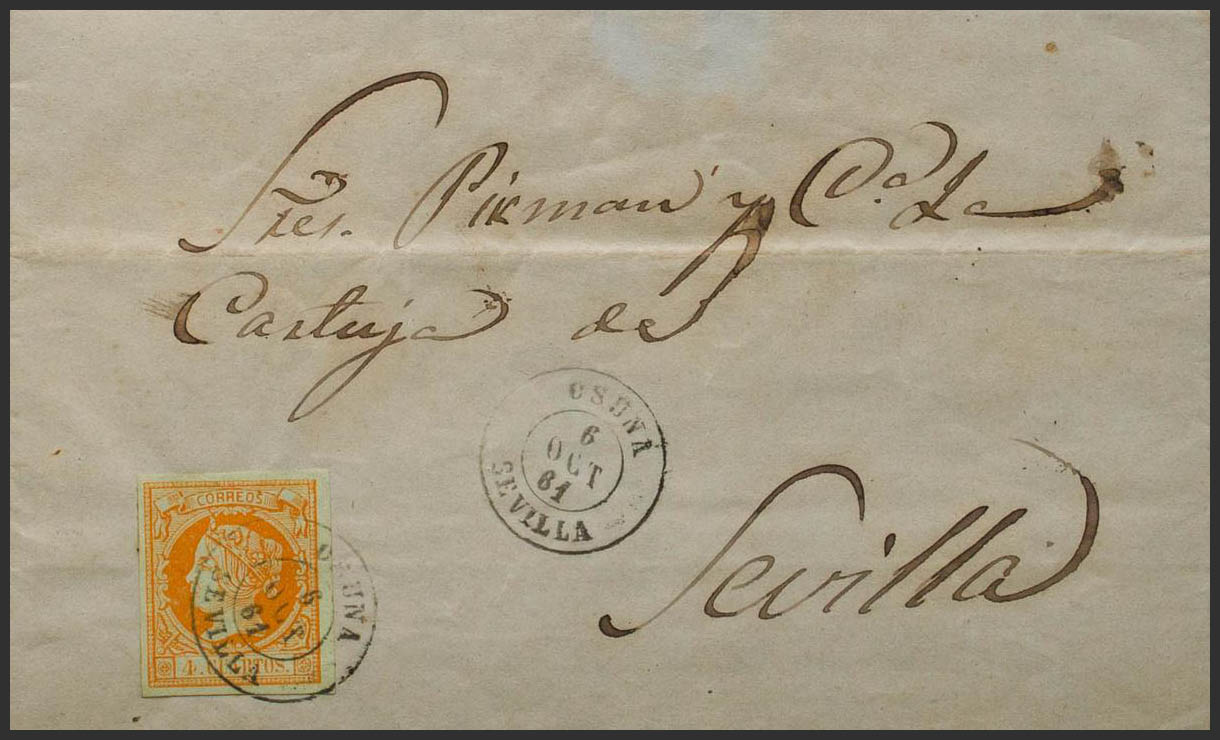 Sres. Pikman y Ca. La
Cartuja de
Sevilla
OSUNA
6
OCT
61
SEVILLA
CORREOS
4 CUARTOS.
OSUNA
6
OCT
61
SEVILLA